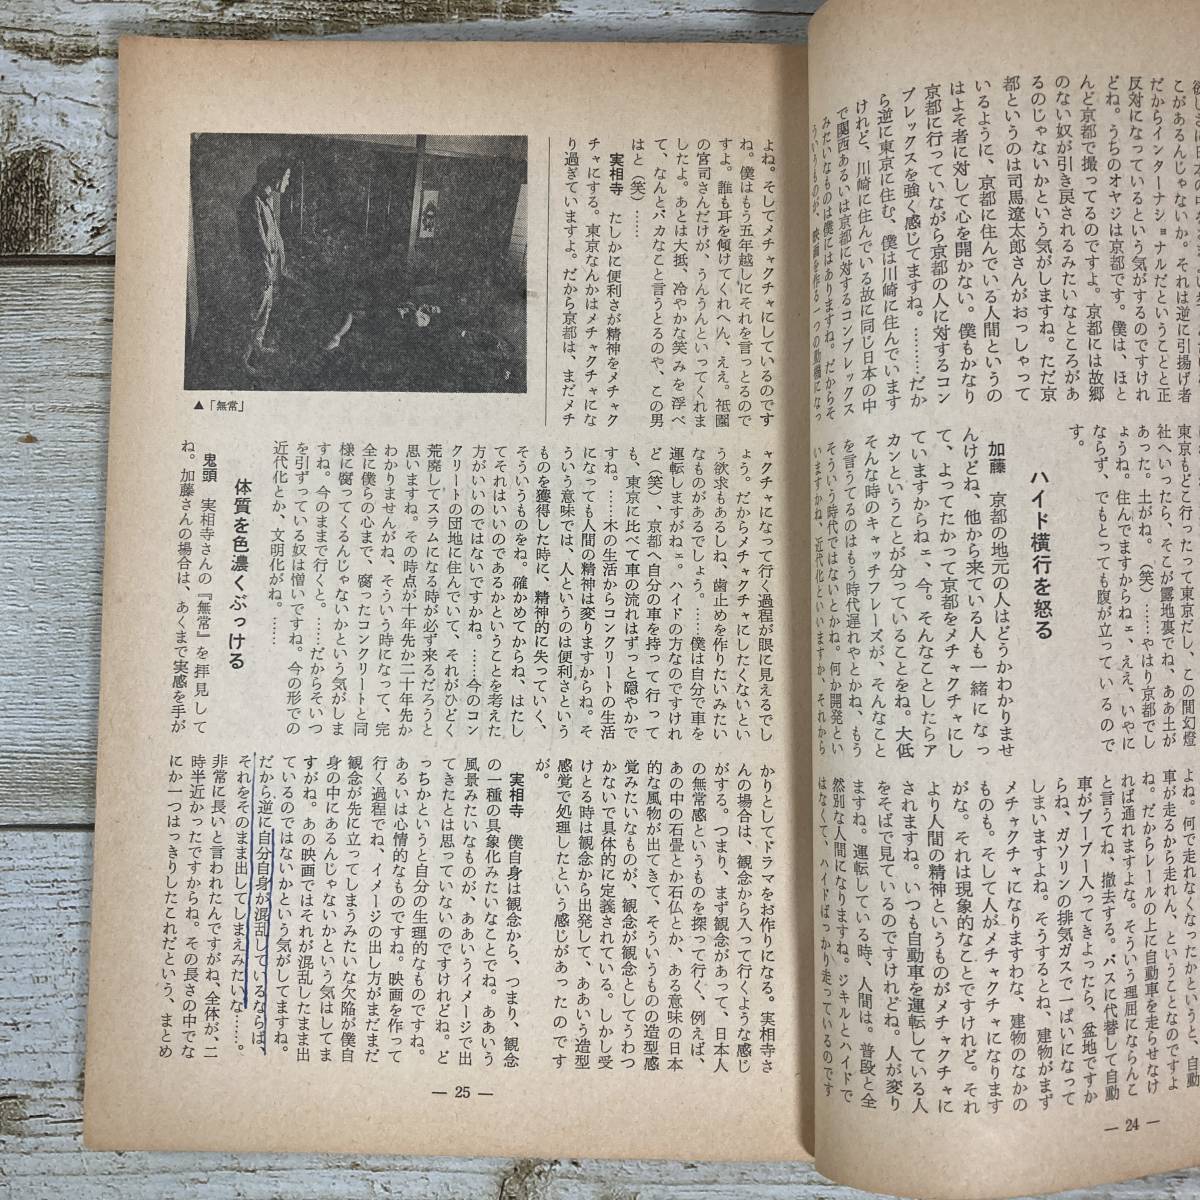 こがあるんじゃないか。それは逆に引揚げ者
だからインターナショナルだということと正
反対になっているという気がするのですけれ
どね。うちのオヤジは京都です。僕は、ほと
んど京都で撮ってるのですよ。京都には故郷
のない奴が引き戻されるみたいなところがあ
るのじゃないかという気がしますね。ただ京
都というのは司馬遼太郎さんがおっしゃって
いるように、京都に住んでいる人間というの
はよそ者に対して心を開かない。僕もかなり
京都に行っていながら京都の人に対するコン
プレックスを強く感じてますね。………だか
ら逆に東京に住む、僕は川崎に住んでいます
けれど、川崎に住んでいる故に同じ日本の中
で関西あるいは京都に対するコンプレックス
みたいなものは僕にはありますね。だからそ
ういうものが、映画を作る一つの動機になっ
東京もどこ行ったって東京だし、この間幻燈
社へいったら、そこが露地裏でね、ああ土が
あった。土がね。(笑)……やはり京都でし
ょうね。住んでますからねェ、ええ、いやに
ならず、でもとっても腹が立っているので
す。
ハイド横行を怒る
加藤　京都の地元の人はどうかわかりませ
んけどね、他から来ている人も一緒になっ
て、よってたかって京都をメチャクチャにし
ていますからねェ、今。そんなことしたらア
カンということが分っていることをね。大低
そんな時のキャッチフレーズが、そんなこと
を言うてるのはもう時代遅れとかね、もう
そういう時代ではないとかね。何か開発とい
いますかね、近代化といいますか、それから
よね。何で走れなくなったかというと、自動
車が走るから走れん、ということなのですよ
ね。だからレールの上に自動車を走らせなけ
れば通れますよな。そういう理屈にならんこ
と言うてね、撤去する。バスに代替して自動
車がブーブー入ってきよったら、盆地ですか
らね、ガソリンの排気ガスで一ぱいになって
しまいますよね。そうするとね、建物がまず
メチャクチャになりますわな、建物のなかの
ものも。そして人がメチャクチャになります
がな。それは現象的なことですけれど。それ
より人間の精神というものがメチャクチャに
されますね。いつも自動車を運転している人
をそばで見ているのですけれどね。人が変り
ますね。運転している時、人間は。普段と全
然別な人間になりますね。ジキルとハイドで
はなくて、ハイドばっかり走っているのです
— 24 —
よね。そしてメチャクチャにしているのです
ね。僕はもう五年越しにそれを言っとるので
すよ。誰も耳を傾けてくれへん、ええ。祇園
の宮司さんだけが、うんうんといってくれま
したよ。あとは大抵、冷やかな笑みを浮べ
て、なんとバカなこと言うとるのや、この男
はと(笑)……
実相寺　たしかに便利さが精神をメチャク
チャにする。東京なんかはメチャクチャにな
り過ぎていますよ。だから京都は、まだメチ
▲「無常」
ャクチャになって行く過程が眼に見えるでし
ょう。だからメチャクチャにしたくないとい
う欲求もあるしね、歯止めを作りたいみたい
なものがあるでしょう。……僕は自分で車を
運転しますがねェ。ハイドの方なのですけれ
ど(笑)、京都へ自分の車を持って行って
も、東京に比べて車の流れはずっと穏やかで
す。……木の生活からコンクリートの生活
になっても人間の精神は変りますからね。そ
ういう意味では、人というのは便利さという
ものを獲得した時に、精神的に失っていく、
そういうものをね。確かめてからね、はたし
てそれはいいのであるかということを考えた
方がいいのではないですかね。……今のコン
クリートの団地に住んでいて、それがひどく
荒廃してスラムになる時が必ず来るだろうと
思いますね。その時点が十年先か二十年先か
わかりませんがね、そういう時になって、完
全に僕らの心まで、腐ったコンクリートと同
様に腐ってくるんじゃないかという気がしま
すね。今のままで行くと。……だからそいつ
を引ずっている奴は憎いですね。今の形での
近代化とか、文明化がね。……
体質を色濃くぶっける
鬼頭　実相寺さんの『無常』を拝見して
ね。加藤さんの場合は、あくまで実感を手が
かりとしてドラマをお作りになる。実相寺さ
んの場合は、観念から入って行くような感じ
がする。つまり、まず観念があって、日本人
の無常感というものを探って行く、例えば、
あの中の石畳とか石仏とか、ある意味の日本
的な風物が出てきて、そういうもの造型感
覚みたいなものが、観念が観念としてうわつ
かないで具体的に定義されている。しかし受
けとる時は観念から出発して、ああいう造型
感覚で処理したという感じがあったのです
が。
実相寺　僕自身は観念から、つまり、観念
の一種の具象化みたいなことでね。ああいう
風景みたいなものが、ああいうイメージで出
てきたとは思っていないのですけれどね。ど
っちかというと自分の生理的なものですね。
あるいは心情的なものですね。映画を作って
行く過程でね、イメージの出し方がまだまだ
観念が先に立ってしまうみたいな欠陥が僕自
身の中にあるんじゃないかという気はしてま
すがね。あの映画ではそれが混乱したまま出
ているのではないかという気がしてますね。
だから逆に自分自身が混乱しているならば、
それをそのまま出してしまえみたいな……。
非常に長いと言われたんですがね、全体が、二
時半近かったですからね。その長さの中でな
にか一つはっきりしたこれだという、まとめ
— 25 —